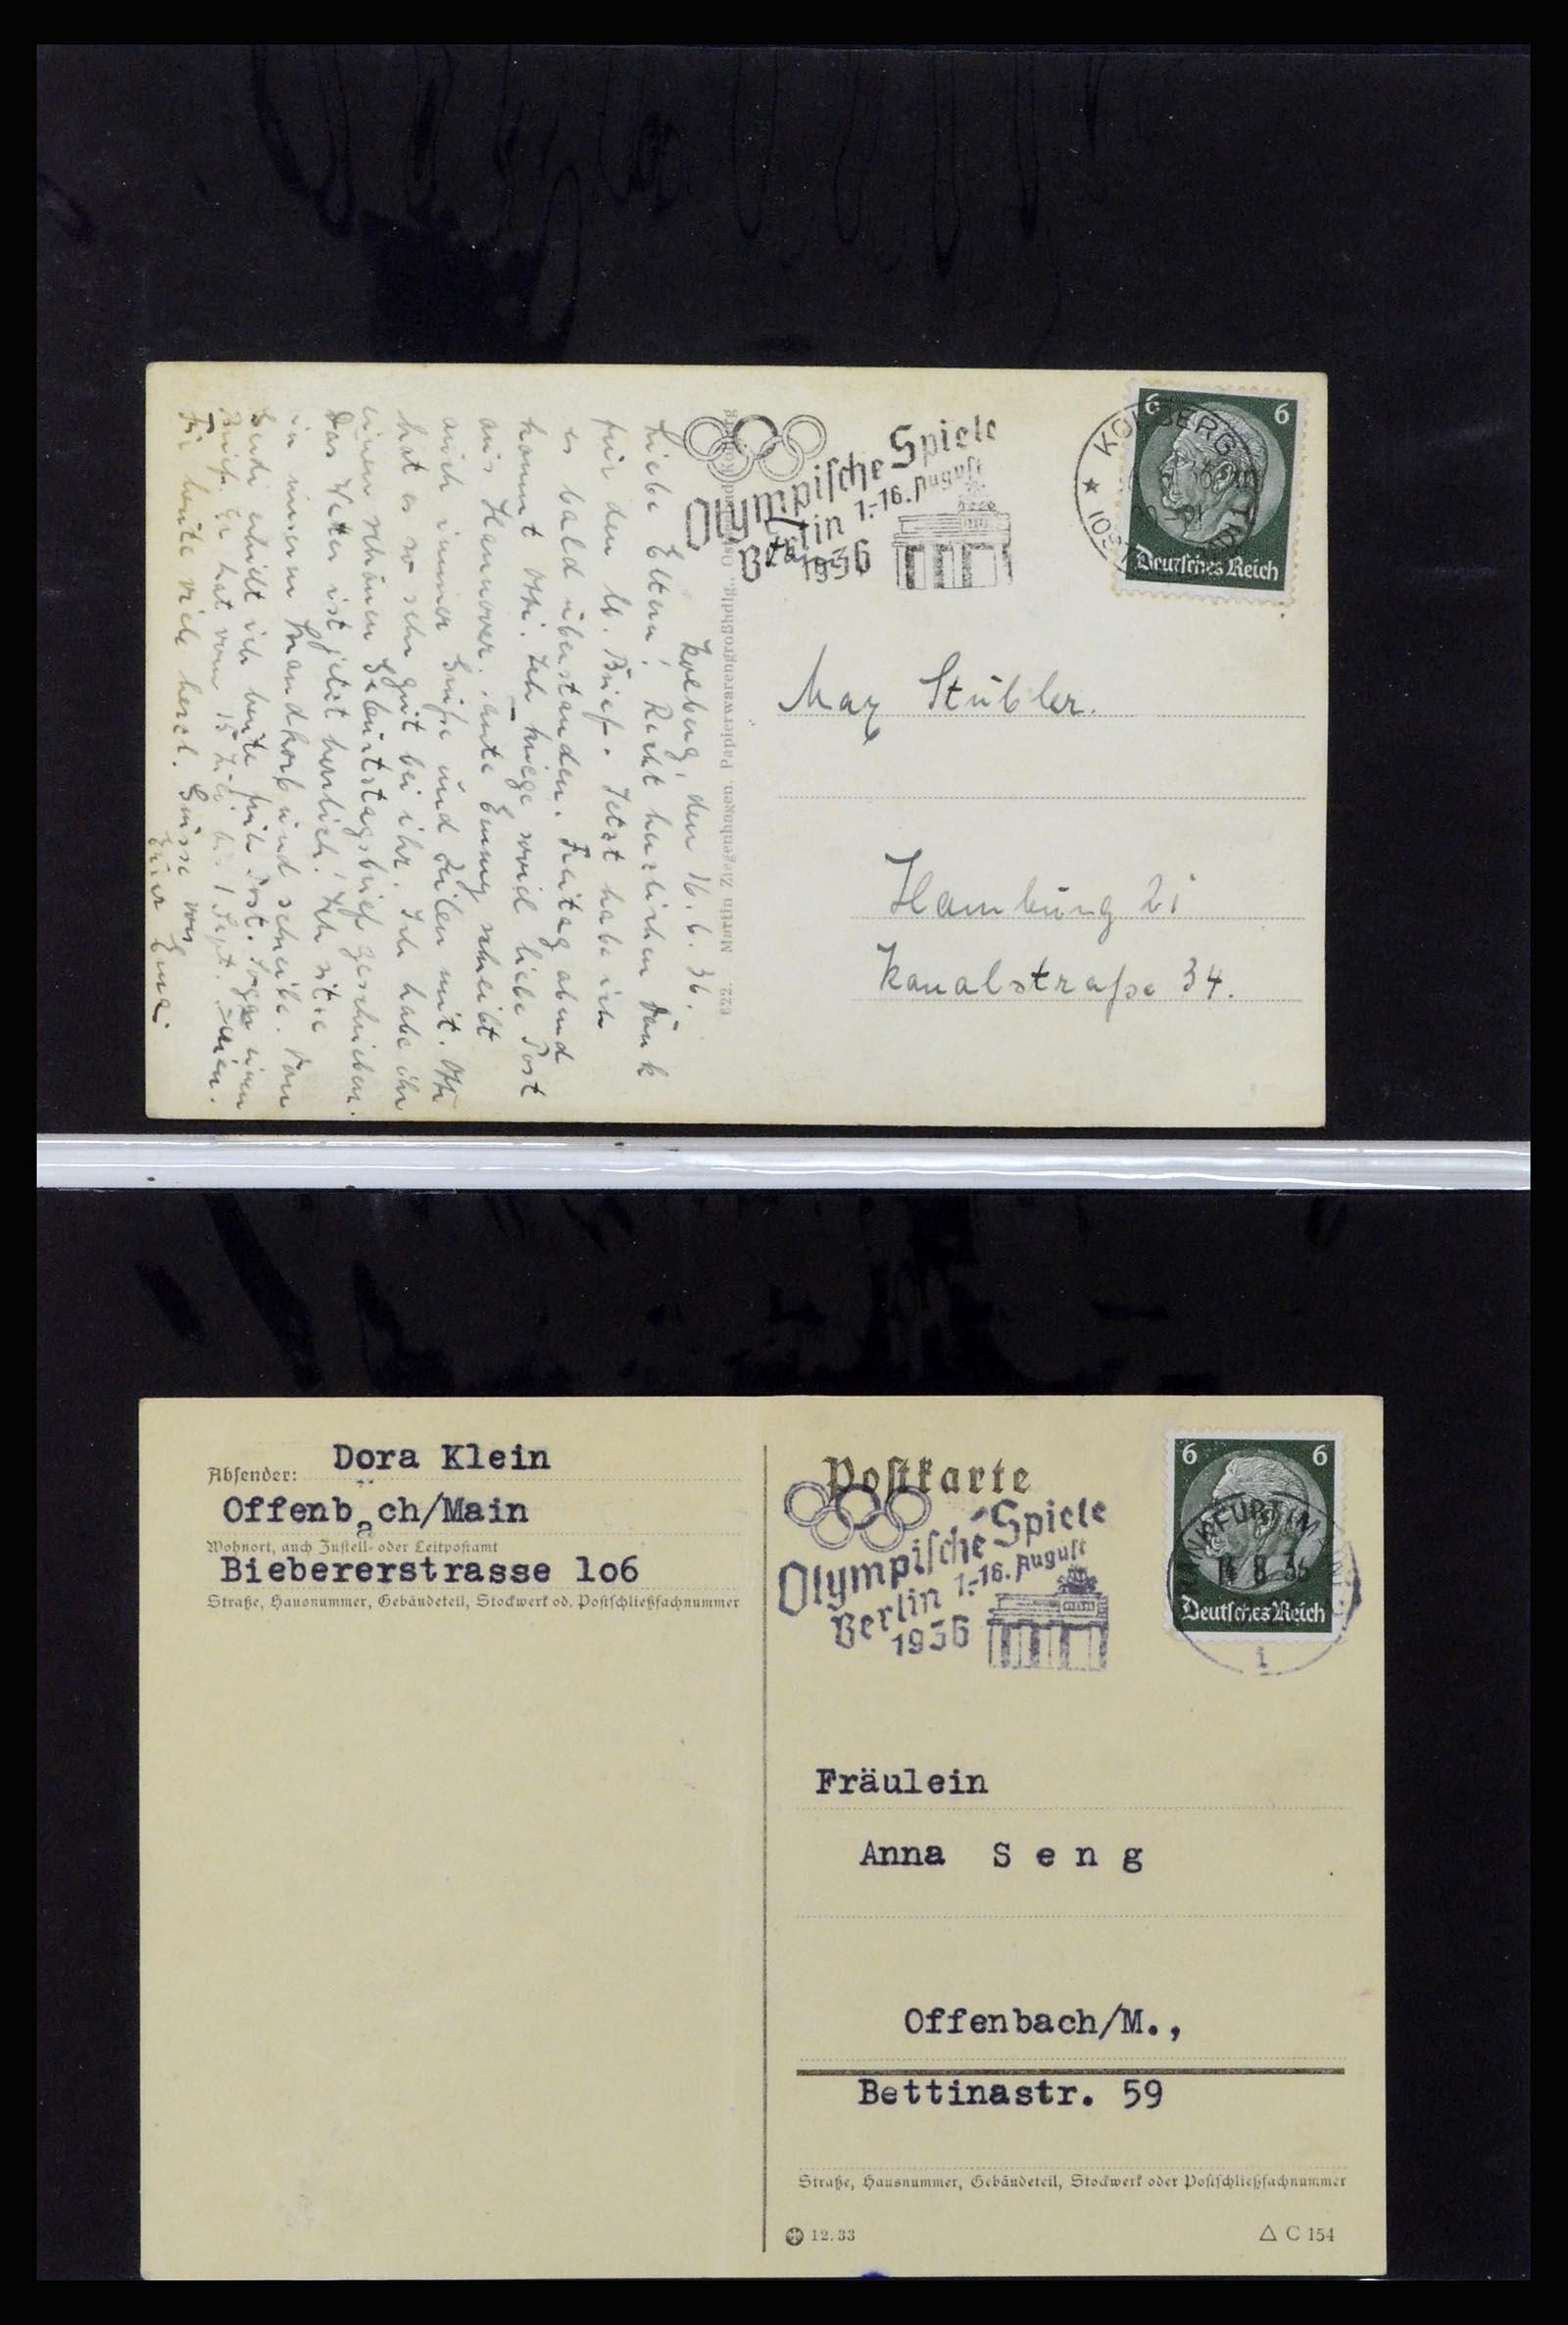 Kolberg, den 16.6.36.
Liebe Eltern! Recht herzlichen Dank
für den lb. Brief. Jetzt habe ich
es bald überstanden. Freitag abend
kommt Otti. Ich kriege soviel liebe Post
aus Hannover. Tante Emmy schreibt
auch immer Grüße und Zeilen mit. Otti
hat es so sehr gut bei ihr. Ich habe ihr
einen schönen Geburtstagsbrief geschrieben.
Das Wetter ist jetzt herrlich. Ich sitze
in unserem Strandkorb und schreibe. Von
erhielt ich heute früh Post. Sogar einen
Brief. Er hat vom 15. Juli bis 1. Sept. Ferien.
Für heute viele herzl. Grüsse von
Eurer Erna.
622. Martin Ziegenhagen, Papierwarengroßhdlg.,
Olympische Spiele
Berlin 1.-16. August
1936
KOLBERG
6 6
Deutsches Reich
Max Stübler.
Hamburg 21
Kanalstraße 34.
Absender: Dora Klein
Offenbach/Main
Wohnort, auch Zustell- oder Leitpostamt
Biebererstrasse 1o6
Straße, Hausnummer, Gebäudeteil, Stockwerk od. Postschließfachnummer
Postkarte
Olympische Spiele
Berlin 1.-16. August
1936
6 6
FRANKFURT (MAIN)
14 8 36
Deutsches Reich
1
Fräulein
Anna S e n g
Offenbach/M.,
Bettinastr. 59
Straße, Hausnummer, Gebäudeteil, Stockwerk oder Postschließfachnummer
12.33
△ C 154